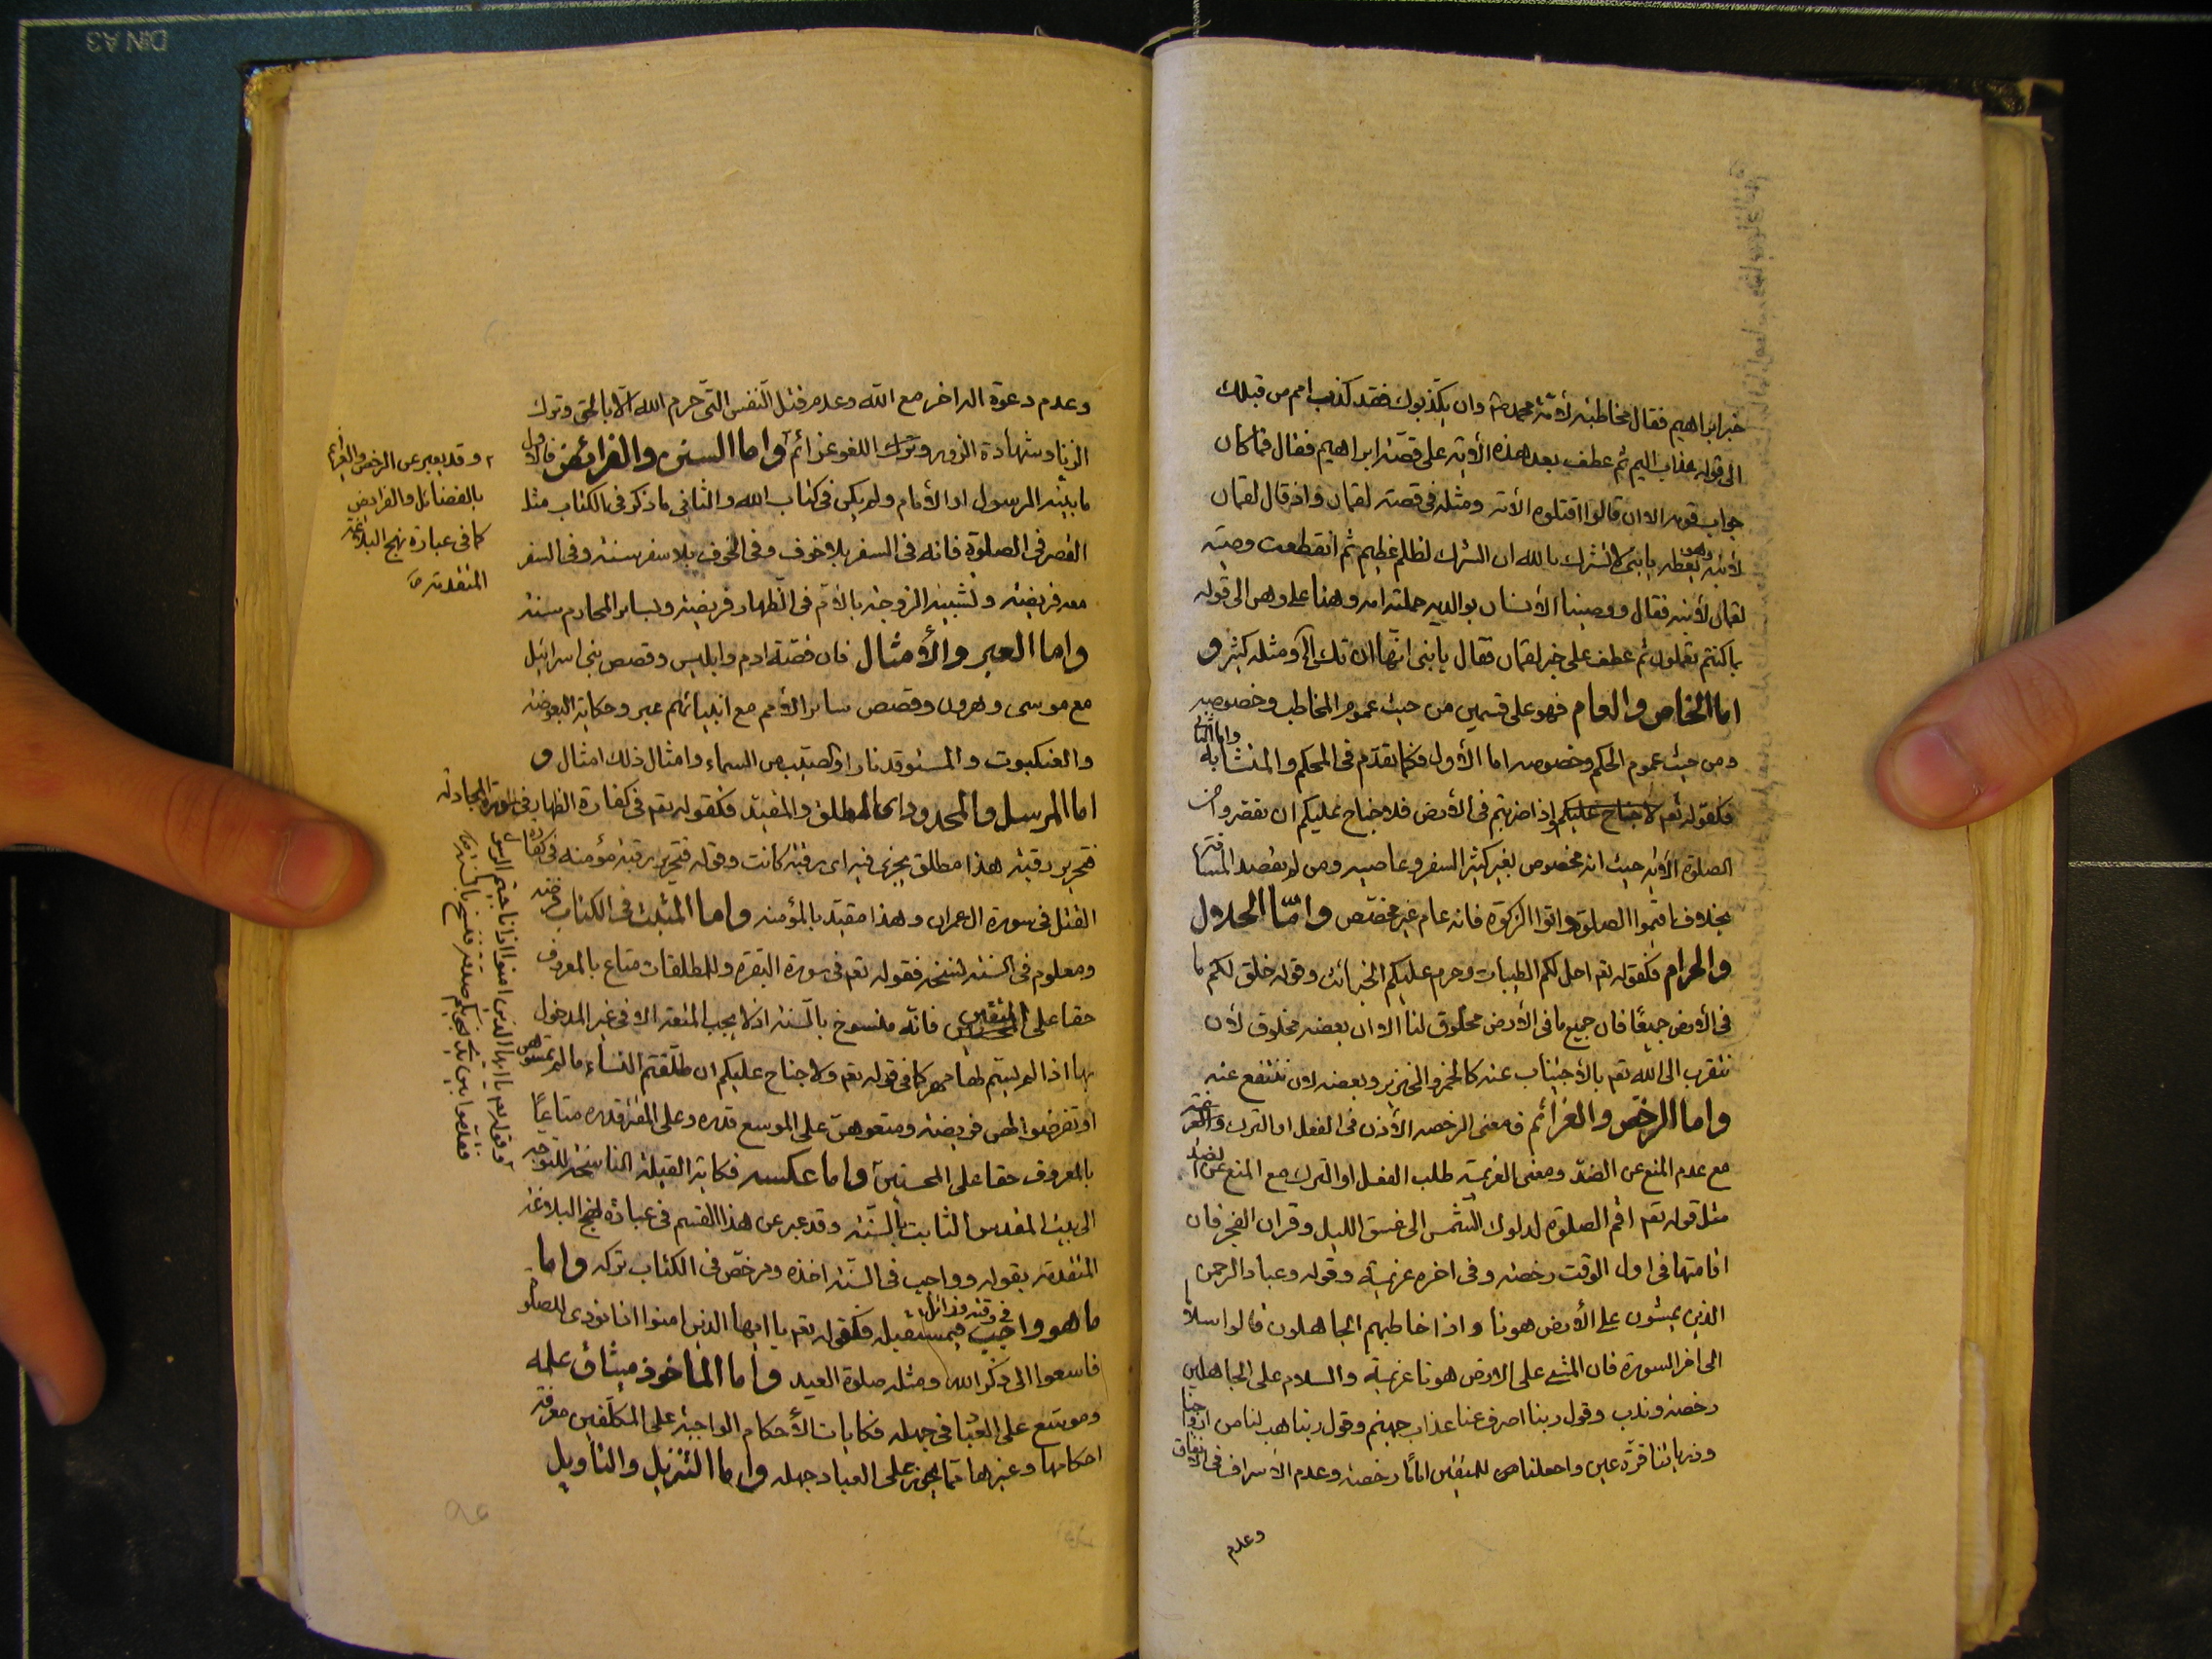 خبر ابراهيم فقال مخاطبة لامة محمد ص وان يكذبوك فقد كذب امم من قبلك
الى قوله عذاب اليم ثم عطف بعد هذه الآية على قصة ابراهيم فقال فما كان
جواب قومه الا ان قالوا اقتلوه الآية ومثله فى قصة لقمان واذ قال لقمان
لابنه وهو يعظه يا بنى لا تشرك بالله ان الشرك لظلم عظيم ثم انقطعت وصية
لقمان لابنه فقال ووصينا الانسان بوالديه حملته امه وهنا على وهن الى قوله
بما كنتم تعملون ثم عطف على خبر لقمان فقال يا بنى انها ان تك الآية ومثله كثير و
اما الخاص والعام فهو على قسمين من حيث عموم المخاطب وخصوصه
ومن حيث عموم الحكم وخصوصه اما الأول فكما تقدم فى المحكم والمتشابه واما الثانى
فكقوله تعم لا جناح عليكم اذا ضربتم فى الأرض فلا جناح عليكم ان تقصروا من
الصلوة الآية حيث انه مخصوص بغير كثير السفر وعاصيه ومن لم يقصد المسافة
بخلاف اقيموا الصلوة واتوا الزكوة فانه عام غير مختص وامّا الحلال
والحرام فكقوله تعم احل لكم الطيبات وحرم عليكم الخبائث وقوله خلق لكم ما
فى الأرض جميعًا فان جميع ما فى الأرض مخلوق لنا الا ان بعضه مخلوق لأن
نتقرب الى الله تعم بالأجتناب عنه كالخمر والخنزير وبعضه لان ننتفع عنه
واما الرخص والعزائم فمعنى الرخصه الأذن فى الفعل او الترك
مع عدم المنع عن الضد ومعنى العزيمة طلب الفعل او الترك مع المنع عن الضد
مثل قوله تعم اقم الصلوة لدلوك الشمس الى غسق الليل وقران الفجر فان
اقامتها فى اول الوقت رخصة وفى اخره عزيمة وقوله وعباد الرحمن
الذين يمشون على الأرض هونا واذا خاطبهم الجاهلون قالوا سلاما
الى اخر السورة فان المشى على الارض هونا عزيمة والسلام على الجاهلين
رخصة وندب وقول ربنا اصرف عنا عذاب جهنم وقول ربنا هب لنا من ازواجنا
وذرياتنا قرة عين واجعلنا من للمتقين امامًا رخصة وعدم الاسراف فى الانفاق
وعدم
وعدم دعوة الها اخر مع الله وعدم قتل النفس التى حرم الله الا بالحق وترك
الزنا وشهادة الزور وترك اللغو عزائم واما السنن والفرائض فالاول
ما بينه الرسول او الأمام ولم يكن فى كتاب الله والثانى ما ذكر فى الكتاب مثل
القصر فى الصلوة فانه فى السفر بلا خوف وفى الخوف بلا سفر سنة وفى السفر
معه فريضة وتشبيه الزوجة بالأم فى الظهار فريضة وبساير المحارم سنة
واما العبر والأمثال فان قصة ادم وابليس وقصص بنى اسرائيل
مع موسى وهرون وقصص ساير الأمم مع انبيائهم عبر وحكاية البعوضة
والعنكبوت والمستوقد نارا او كصيب من السماء وامثال ذلك امثال و
اما المرسل والمحدود اى المطلق والمقيد فكقوله تعم فى كفارة الظهار فى سورة المجادلة
فتحرير رقبة هذا مطلق يجزى فيه اى رقبة كانت وقوله فتحرير رقبة مؤمنه فى كفارة
القتل فى سورة ال عمران وهذا مقيد بالمؤمنه واما المثبت فى الكتاب فرضه
ومعلوم فى السنة نسخه فقوله تعم فى سورة البقرة وللمطلقات متاع بالمعروف
حقا على المتقين فانه منسوخ بالسنة اذ لا يجب المتعة الا فى غير المدخول
بها اذا لم يسم لها مهر كما فى قوله تعم ولا جناح عليكم ان طلقتم النساء ما لم تمسوهن
او تفرضوا لهن فريضة ومتعوهن على الموسع قدره وعلى المقتر قدره متاعًا
بالمعروف حقا على المحسنين واما عكسه فكاية القبلة الناسخة للتوجه
الى بيت المقدس الثابت بالسنة وقد عبر عن هذا القسم فى عبارة نهج البلاغة
المتقدمة بقوله وواجب فى السنة اخذه ومرخص فى الكتاب تركه واما
ما هو واجب فى وقته وزائل فى مستقبله فكقوله تعم يا ايها الذين امنوا اذا نودى للصلوة
فاسعوا الى ذكر الله ومثله صلوة العيد واما المأخوذ ميثاق علمه
وموسع على العباد فى جهله فكايات الأحكام الواجبة على المكلفين معرفة
احكامها وغيرها مما يجوز على العباد جهله واما التنزيل والتأويل
وقد يعبر عن الرخص والعزائم
بالفضائل والفرايض
كما فى عبارة نهج البلاغة
المتقدمة
وقوله تعم يا ايها الذين امنوا اذا ناجيتم الرسول
فقدموا بين يدى نجويكم صدقة فنسخ بالسنة